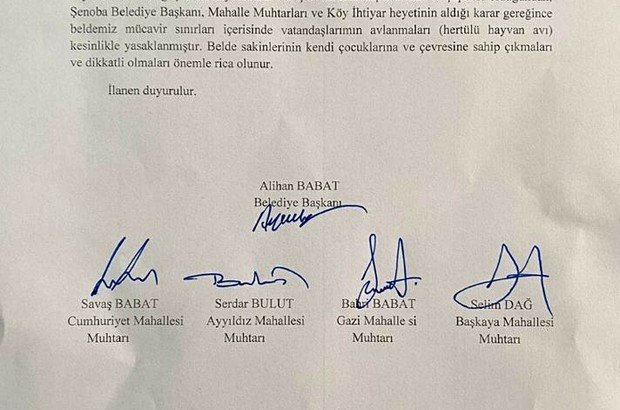 Şenoba Belediye Başkanı, Mahalle Muhtarları ve Köy İhtiyar heyetinin aldığı karar gereğince
beldemiz mücavir sınırları içerisinde vatandaşlarımın avlanmaları (hertülü hayvan avı)
kesinlikle yasaklanmıştır. Belde sakinlerinin kendi çocuklarına ve çevresine sahip çıkmaları
ve dikkatli olmaları önemle rica olunur.
İlanen duyurulur.
Alihan BABAT
Belediye Başkanı
Savaş BABAT Serdar BULUT Bahri BABAT Selim DAĞ
Cumhuriyet Mahallesi Ayyıldız Mahallesi Gazi Mahalle si Başkaya Mahallesi
Muhtarı Muhtarı Muhtarı Muhtarı